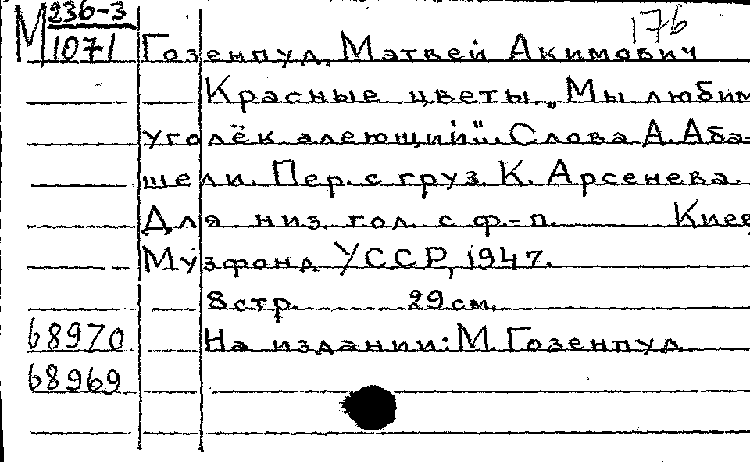 М 236-3
1071
176
Гозенпуд, Матвей Акимович
Красные цветы. „Мы любим
уголёк алеющий"... Слова А. Аба-
шели. Пер. с груз. К. Арсенева.
Для низ. гол. с ф.-п. Киев,
Музфонд УССР, 1947.
8 стр. 29 см.
68970 На издании: М. Гозенпуд
68969